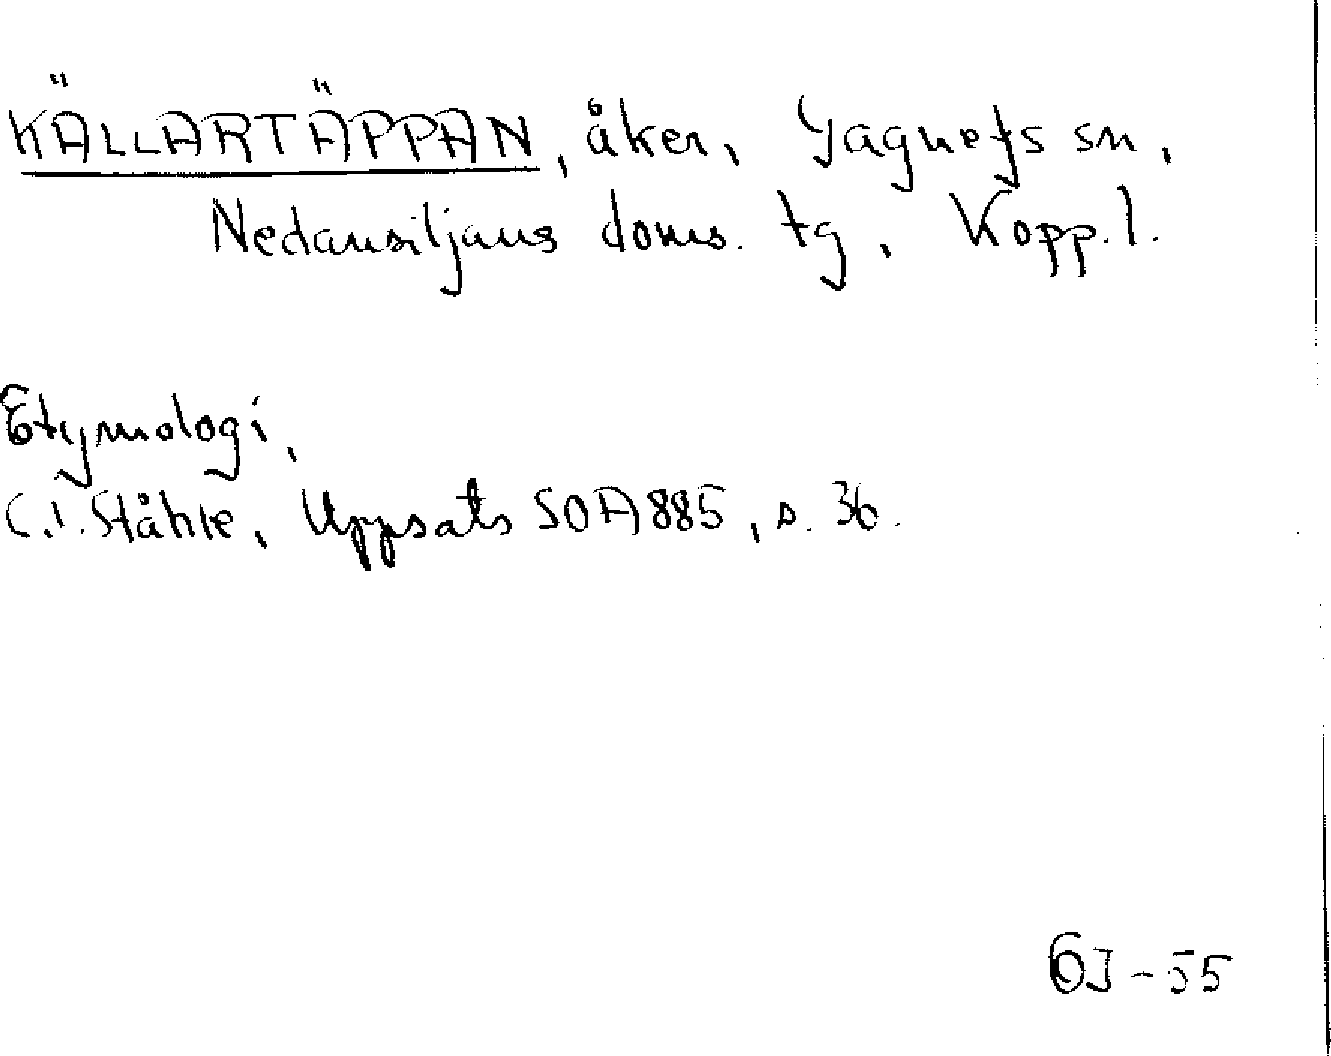 KÄLLARTÄPPAN, åker, Gagnefs sn,
Nedansiljans doms. tg, Kopp.l.
Etymologi,
C.I. Ståhle, Uppsats SOA885, s. 36.
GJ-55